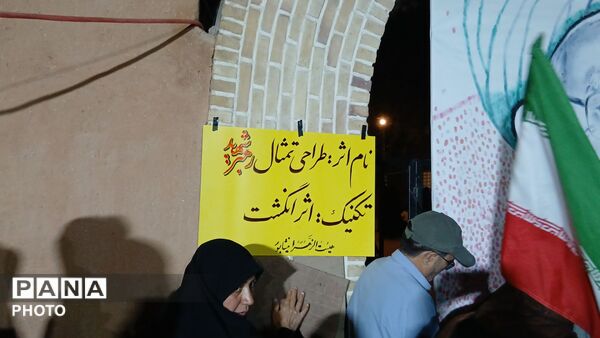 نام اثر: طراحی تمثال رهبر شهید
تکنیک: اثر انگشت
هیئت الزهرا نیشابور
PANA
PHOTO